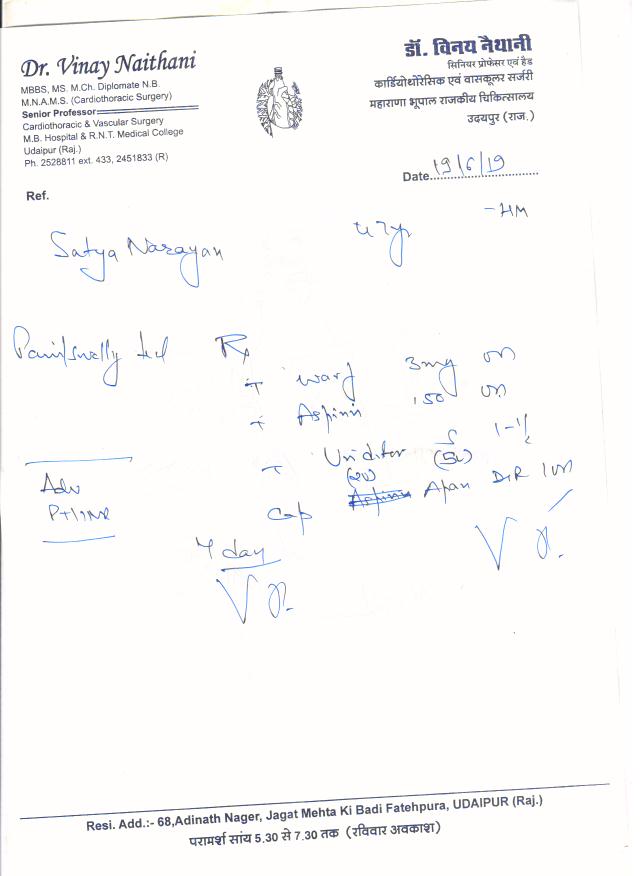 Dr. Vinay Naithani
MBBS, MS. M.Ch. Diplomate N.B.
M.N.A.M.S. (Cardiothoracic Surgery)
Senior Professor
Cardiothoracic & Vascular Surgery
M.B. Hospital & R.N.T. Medical College
Udaipur (Raj.)
Ph. 2528811 ext. 433, 2451833 (R)
डॉ. विनय नैथानी
सिनियर प्रोफेसर एवं हैड
कार्डियोथोरेसिक एवं वासकूलर सर्जरी
महाराणा भूपाल राजकीय चिकित्सालय
उदयपुर (राज.)
Date 19/6/19
Ref.
Satya Narayan
Rx
T warf 3mg
+ Aspirin 150
T Uniditor 5 1-½
(20) (50)
Cap Apan DSR
Adv
PT/INR
7 day
Resi. Add.:- 68,Adinath Nager, Jagat Mehta Ki Badi Fatehpura, UDAIPUR (Raj.)
परामर्श सांय 5.30 से 7.30 तक (रविवार अवकाश)